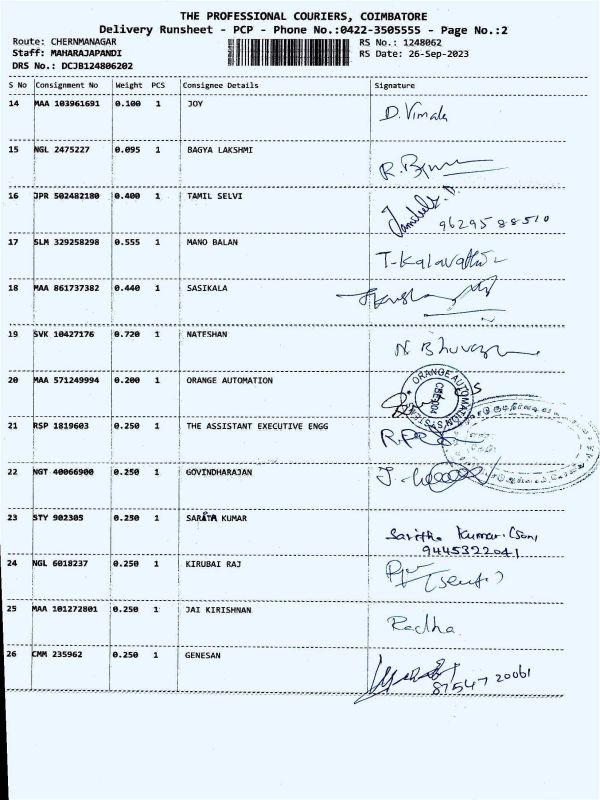 THE PROFESSIONAL COURIERS, COIMBATORE
Delivery Runsheet - PCP - Phone No.:0422-3505555 - Page No.:2
Route: CHERNMANAGAR RS No.: 1248062
Staff: MAHARAJAPANDI RS Date: 26-Sep-2023
DRS No.: DCJB124806202
S No Consignment No Weight PCS Consignee Details Signature
14 MAA 103961691 0.100 1 JOY D. Vimala
15 NGL 2475227 0.095 1 BAGYA LAKSHMI
16 JPR 502482180 0.400 1 TAMIL SELVI
9629588510
17 SLM 329258298 0.555 1 MANO BALAN T-Kalavathi
18 MAA 861737382 0.440 1 SASIKALA
19 SVK 10427176 0.720 1 NATESHAN
20 MAA 571249994 0.200 1 ORANGE AUTOMATION ORANGE AUTOMATION SYSTEM
21 RSP 1819603 0.250 1 THE ASSISTANT EXECUTIVE ENGG
22 NGT 40066900 0.250 1 GOVINDHARAJAN
23 STY 902305 0.250 1 SARITA KUMAR Saritha Kumar (Son)
9445322041
24 NGL 6018237 0.250 1 KIRUBAI RAJ
25 MAA 101272801 0.250 1 JAI KIRISHNAN Radha
26 CMM 235962 0.250 1 GENESAN
87547 20061